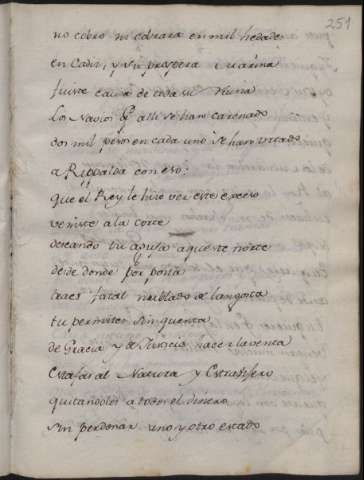 251
no cobro ni cobrara en mil hedades
en Cadiz, y su prospera Marina
fuiste causa de toda su Ruina
Los Navios q̃ alli se han carenado
dos mil pesos en cada uno se han vntado
a Ripalda con eso:
que el Rey le hizo ver este exceso
veniste a la corte
deseando tu aguja aqueste norte
desde donde por posta
traes fatal nublado de langosta
tu permites sin quenta
de Gracia y de Justicia hacer la venta
Estafar al Natura y Estrangero
quitandoles a todos el dinero
sin perdonar uno y otro estado